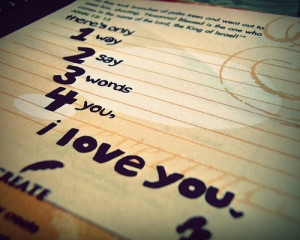 trees and went out to
is the one who
name of the Lord, the King of Israel!"
there's only
1 way
2 say
3 words
4 you,
i love you.